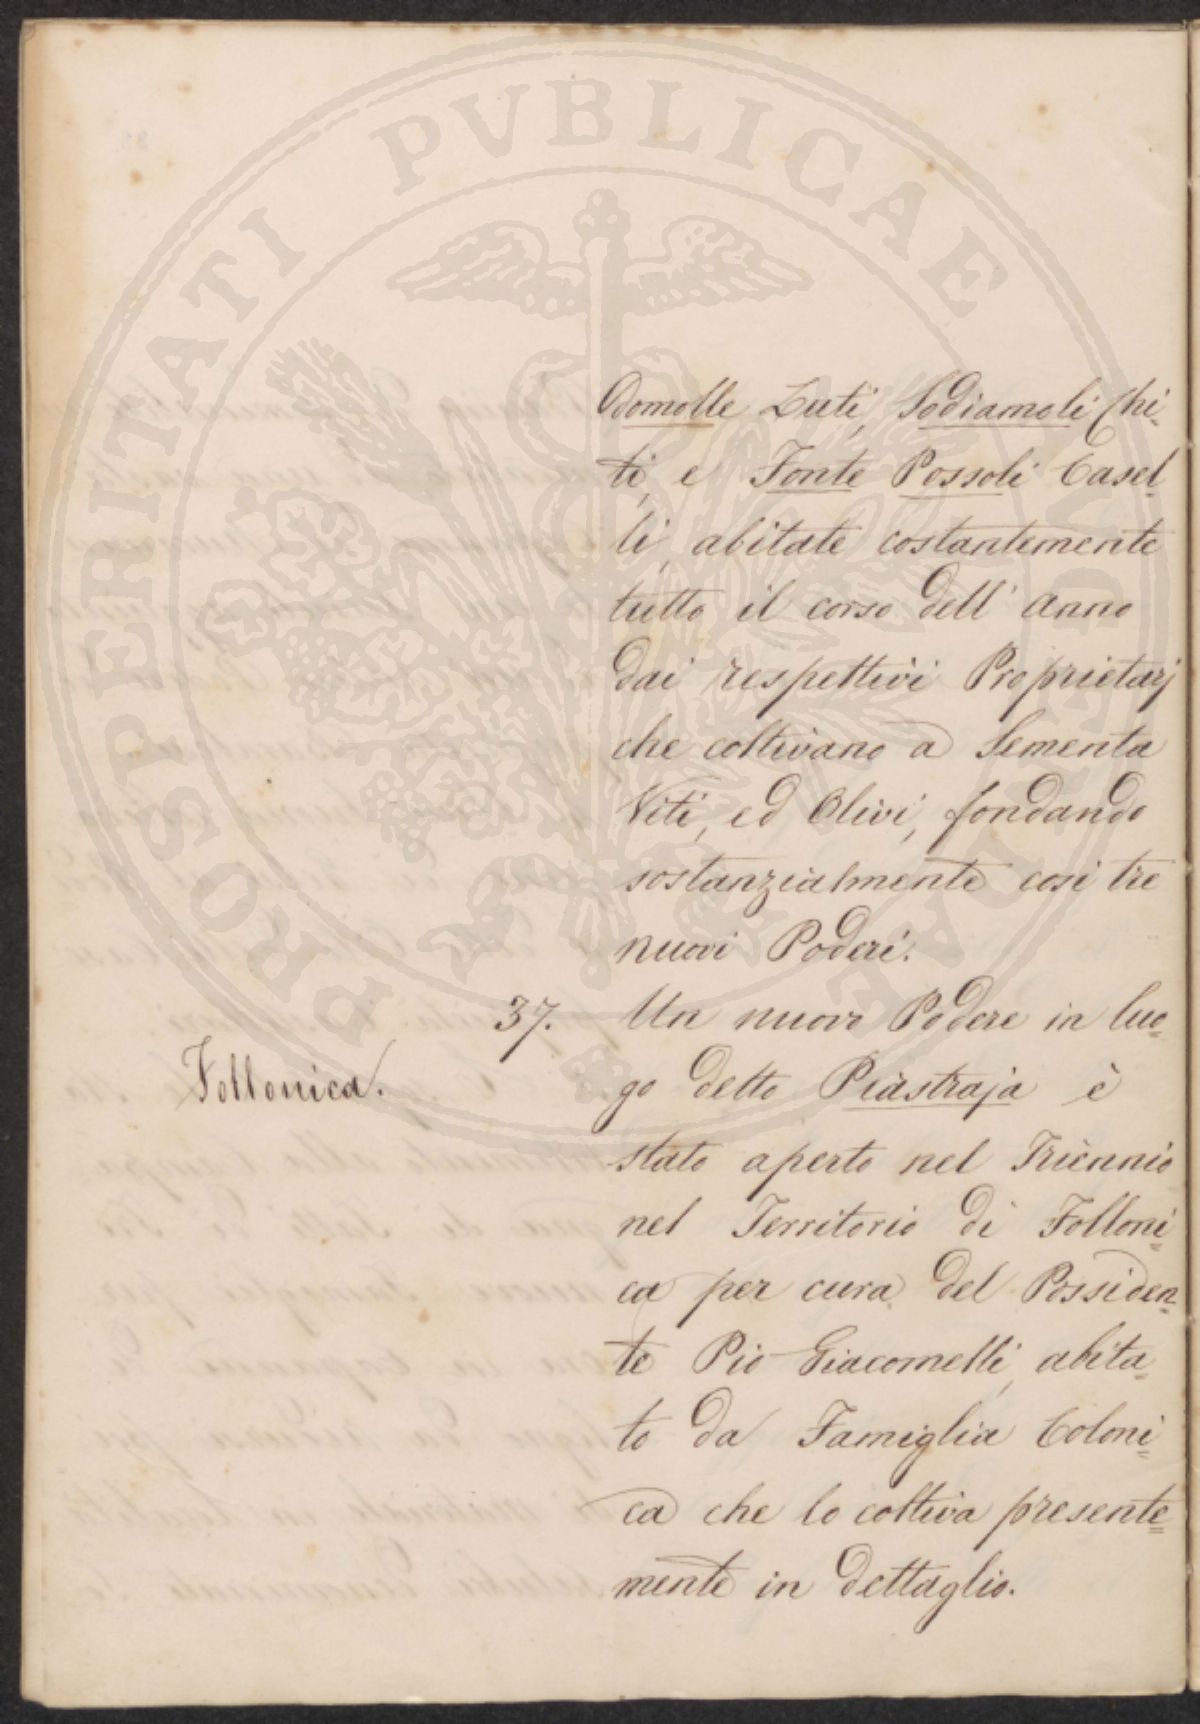 PROSPERITATI PVBLICAE
Odomolle Luti, Sodiamoli Chi-
ti, e Fonte Possoli Casel-
li, abitate costantemente
tutto il corso dell' anno
dai respettivi Proprietarj
che coltivano a Sementa
Viti, ed Olivi, fondando
sostanzialmente così tre
nuovi Poderi.
37. Un nuovo Podere in luo=
Follonica.
go detto Piastraja è
stato aperto nel Triennio
nel Territorio di Folloni=
ca per cura del Possiden=
te Pio Giacomelli, abita=
to da Famiglia Coloni=
ca che lo coltiva presente=
mente in dettaglio.